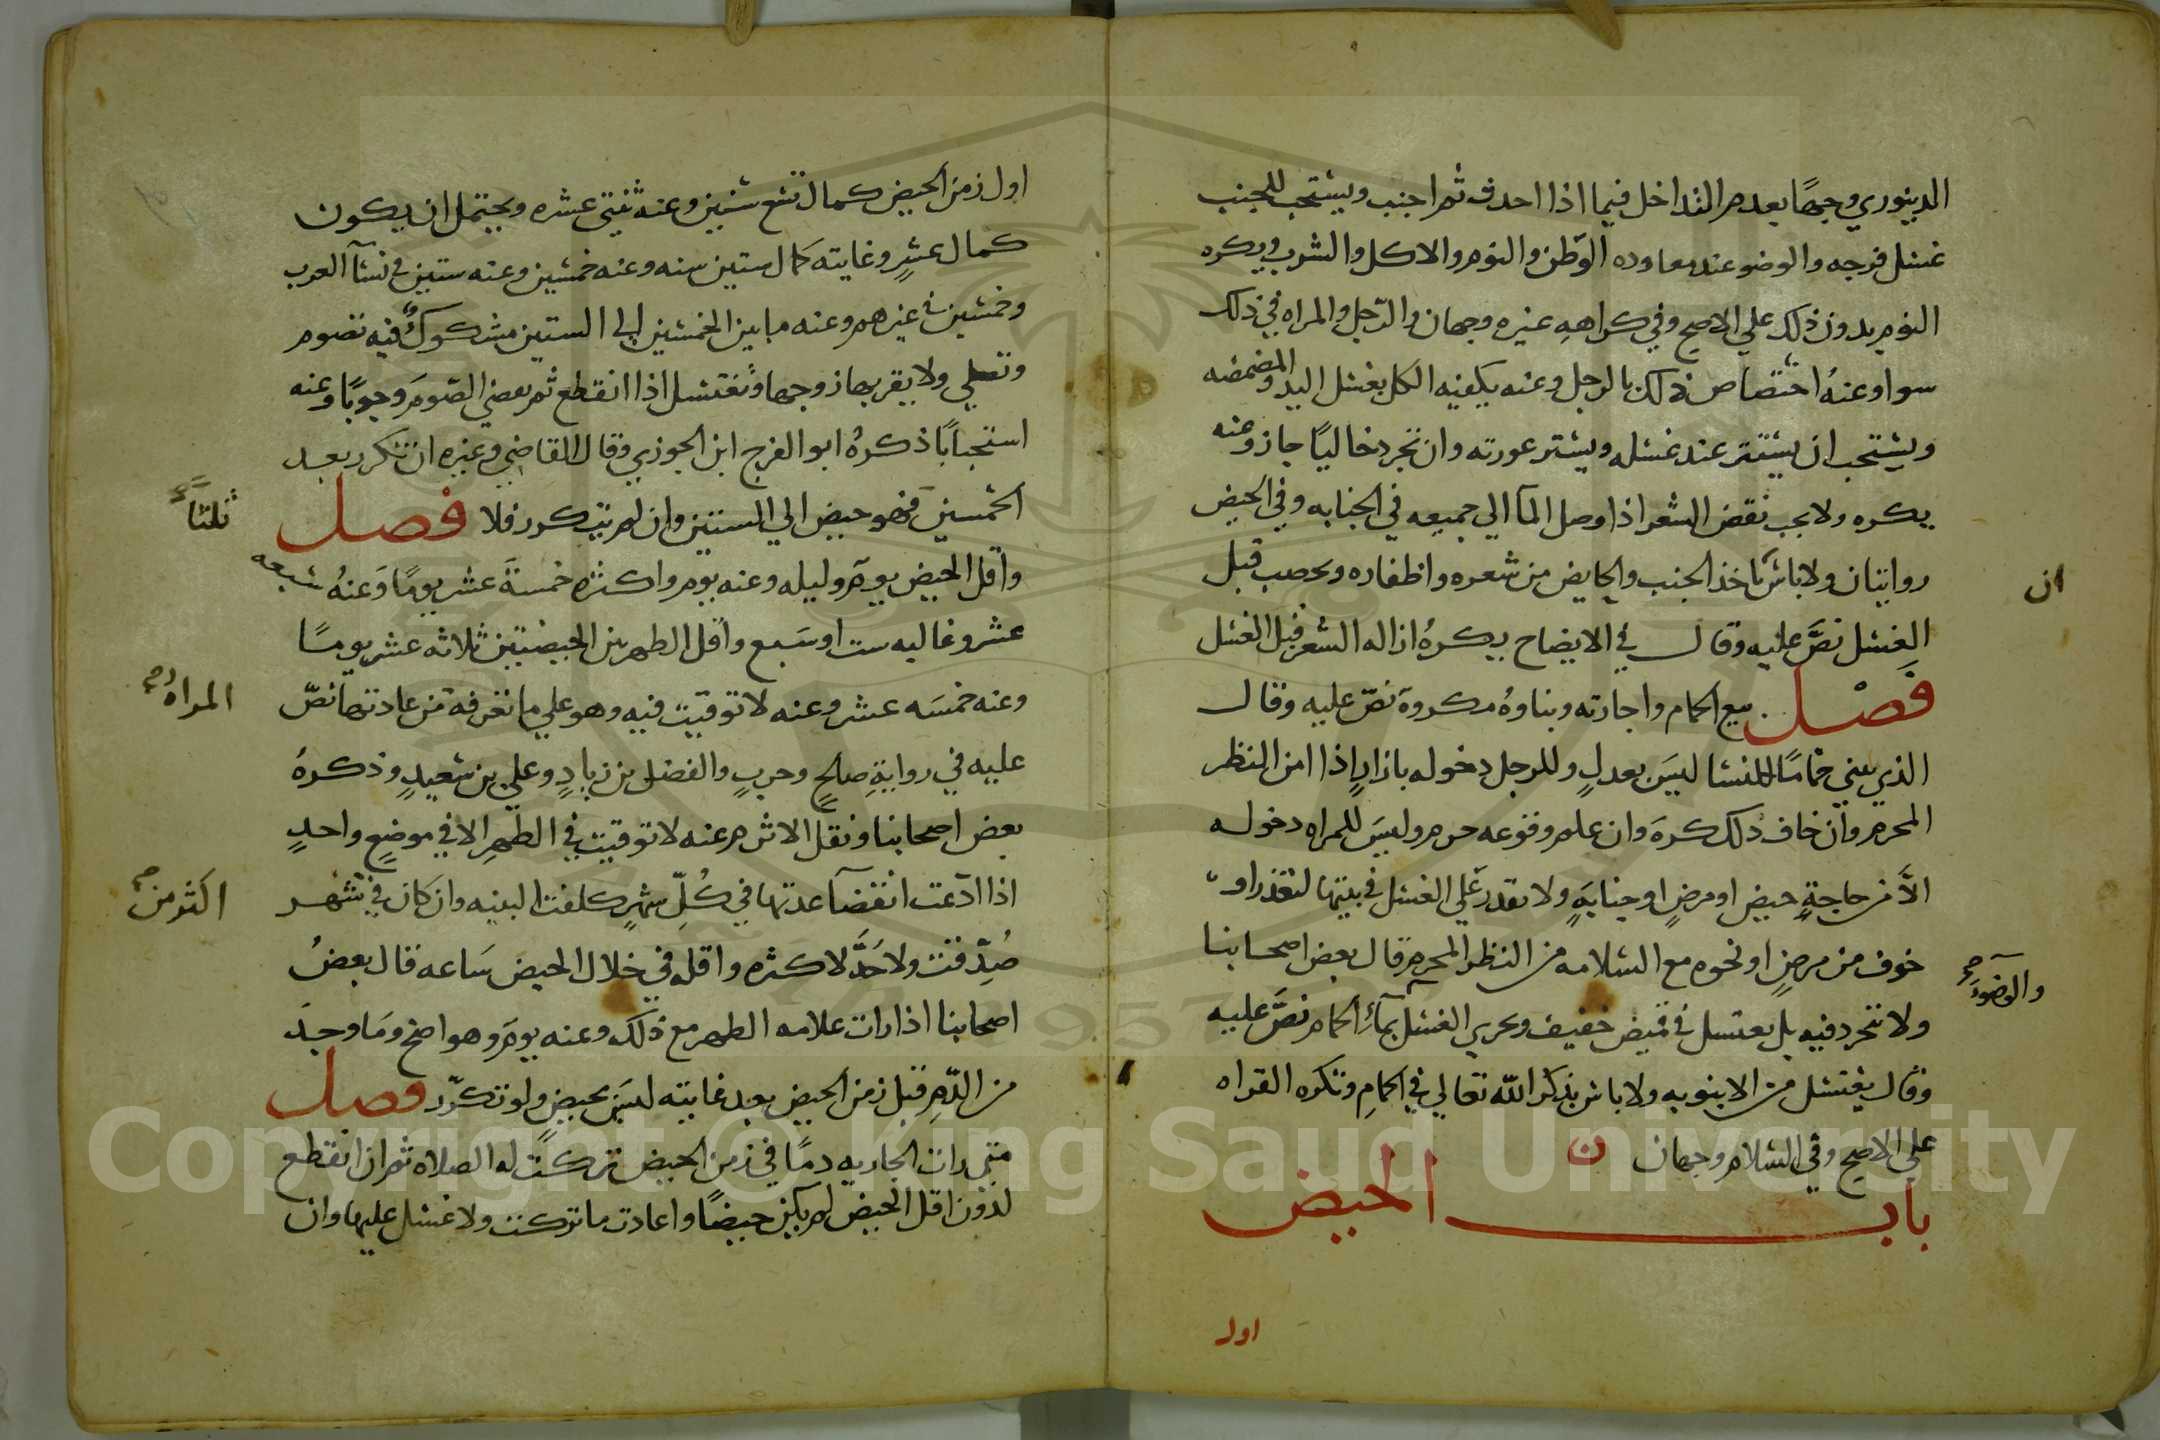 الدينوري وجها بعدم التداخل فيما اذا احدث ثم اجنب ويستحب للجنب
غسل فرجه والوضو عند معاوده الوطئ والنوم والاكل والشرب ويكره
النوم بدون ذلك علي الاصح وفي كراهه غيره وجهان والرجل والمراه في ذلك
سوا وعنه اختصاص ذلك بالرجل وعنه يكفيه الكل بغسل اليد والمضمضه
ويستحب ان يستتر عند غسله ويستر عورته وان تجرد خاليا جاز وعنه
يكره ولا يجب نقض الشعر اذا وصل المآ الي جميعه في الجنابه وفي الحيض
روايتان ولا باس ياخذ الجنب والحايض من شعره واظفاره ويخضب قبل
ان
الغسل نصَّ عليه وقال في الايضاح يكره ازاله الشعر قبل الغسل
فصل بيع الحمام واجارته وبناوه مكروه نصّ عليه وقال
الذي يبني حماما للنسا ليس بعدل وللرجل دخوله بازار اذا امن النظر
المحرم وان خاف ذلك كره وان علم وقوعه حرم وليس للمراه دخوله
الا من حاجة حيض او مرض او جنابة ولا تقدر علي الغسل في بيتها لتعذر او
خوف من مرض او نحوه مع السلامه من النظر المحرم قال بعض اصحابنا
ولا تتجرد فيه بل تغتسل في قميص خفيف ويجزي الغسل بمآء الحمام نصَّ عليه
والوضوء صح
وقال يغتسل من الانبوبه ولا باس بذكر الله تعالي في الحمام وتكره القراه
علي الاصح وفي السلام وجهان ن
باب الحيض
اول
اول زمن الحيض كمال تسع سنين وعنه ثنتي عشره ويحتمل ان يكون
كمال عشر وغايته كمال ستين سنه وعنه خمسين وعنه ستين في نسآ العرب
وخمسين في غيرهم وعنه ما بين الخمسين الي الستين مشكوك فيه تصوم
وتصلي ولا يقربها زوجها وتغتسل اذا انقطع ثم تقضي الصوم وجوبا وعنه
استحبابا ذكره ابو الفرج ابن الجوزي وقال القاضي وغيره ان تكرر بعد
الخمسين فهو حيض الي الستين وان لم يتكرر فلا فصل
ثلثا
واقل الحيض يوم وليله وعنه يوم واكثره خمسة عشر يوما وعنه سبعه
عشر وغالبه ست او سبع واقل الطهر بين الحيضتين ثلاثه عشر يوما
وعنه خمسه عشر وعنه لا توقيت فيه وهو علي ما تعرفه من عادتها نصّ
المراه صح
عليه في رواية صالح وحرب والفضل بن زياد وعلي بن سعيد وذكره
بعض اصحابنا ونقل الاثرم عنه لا توقيت في الطهر الا في موضع واحد
اذا ادعت انقضآ عدتها في كلّ شهر كلفت البينه وان كان في شهر
اكثر من صح
صُدِّقت ولا حدَّ لاكثره واقله في خلال الحيض ساعه قال بعض
اصحابنا اذا رات علامه الطهر مع ذلك وعنه يوم وهو اصح وما وجد
من الدّم قبل زمن الحيض بعد غايته ليس بحيض ولو تكرّر فصل
متي رات الجاريه دما في زمن الحيض تركت له الصلاه ثم ان انقطع
لدون اقل الحيض لم يكن حيضا واعادت ما تركت ولا غسل عليها وان
Copyright © King Saud University
1957